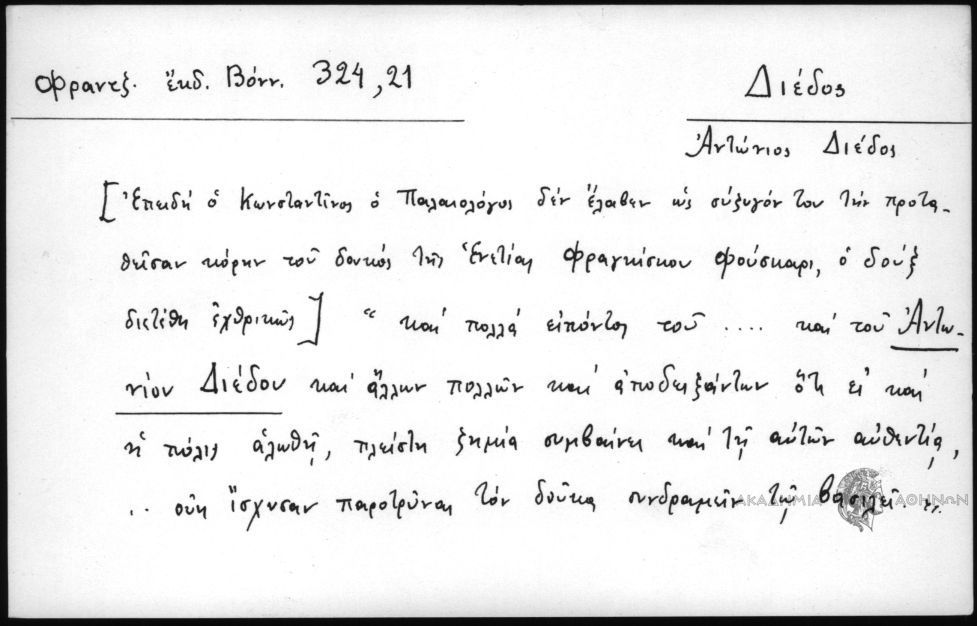 Φραντζ. ἔκδ. Βόνν. 324,21
Διέδος
Ἀντώνιος Διέδος
[Ἐπειδή ὁ Κωνσταντῖνος ὁ Παλαιολόγος δέν ἔλαβεν ὡς σύζυγόν του τήν προτα-
θεῖσαν κόρην τοῦ δουκός τῆς Ἑνετίας Φραγκίσκου Φούσκαρι, ὁ δούξ
διετέθη ἐχθρικῶς] " καί πολλά εἰπόντος τοῦ .... καί τοῦ Ἀντω-
νίου Διέδου καί ἄλλων πολλῶν καί ἀποδειξάντων ὅτι εἰ καί
ἡ πόλις ἁλωθῇ, πλείστη ζημία συμβαίνει καί τῇ αὐτῶν αὐθεντίᾳ,
.. οὐκ ἴσχυσαν παροτρῦναι τόν δοῦκα συνδραμεῖν τῷ βασιλεῖ
ΑΚΑΔΗΜΙΑ ΑΘΗΝΩΝ